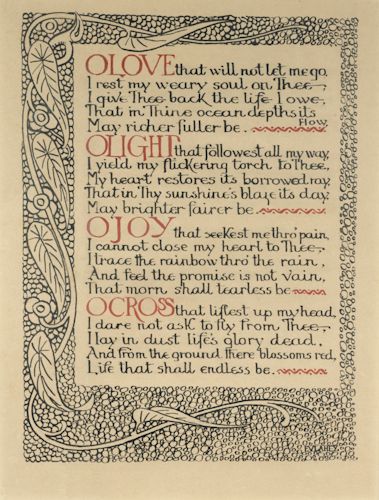 O LOVE that will not let me go,
I rest my weary soul on Thee,
I give Thee back the life I owe,
That in Thine ocean depths its
flow
May richer fuller be.
O LIGHT that followest all my way,
I yield my flickering torch to Thee,
My heart restores its borrowed ray,
That in Thy sunshine's blaze its day
May brighter fairer be.
O JOY that seekest me thro' pain,
I cannot close my heart to Thee,
I trace the rainbow thro' the rain,
And feel the promise is not vain,
That morn shall tearless be
O CROSS that liftest up my head,
I dare not ask to fly from Thee,
I lay in dust life's glory dead,
And from the ground there blossoms red,
Life that shall endless be.